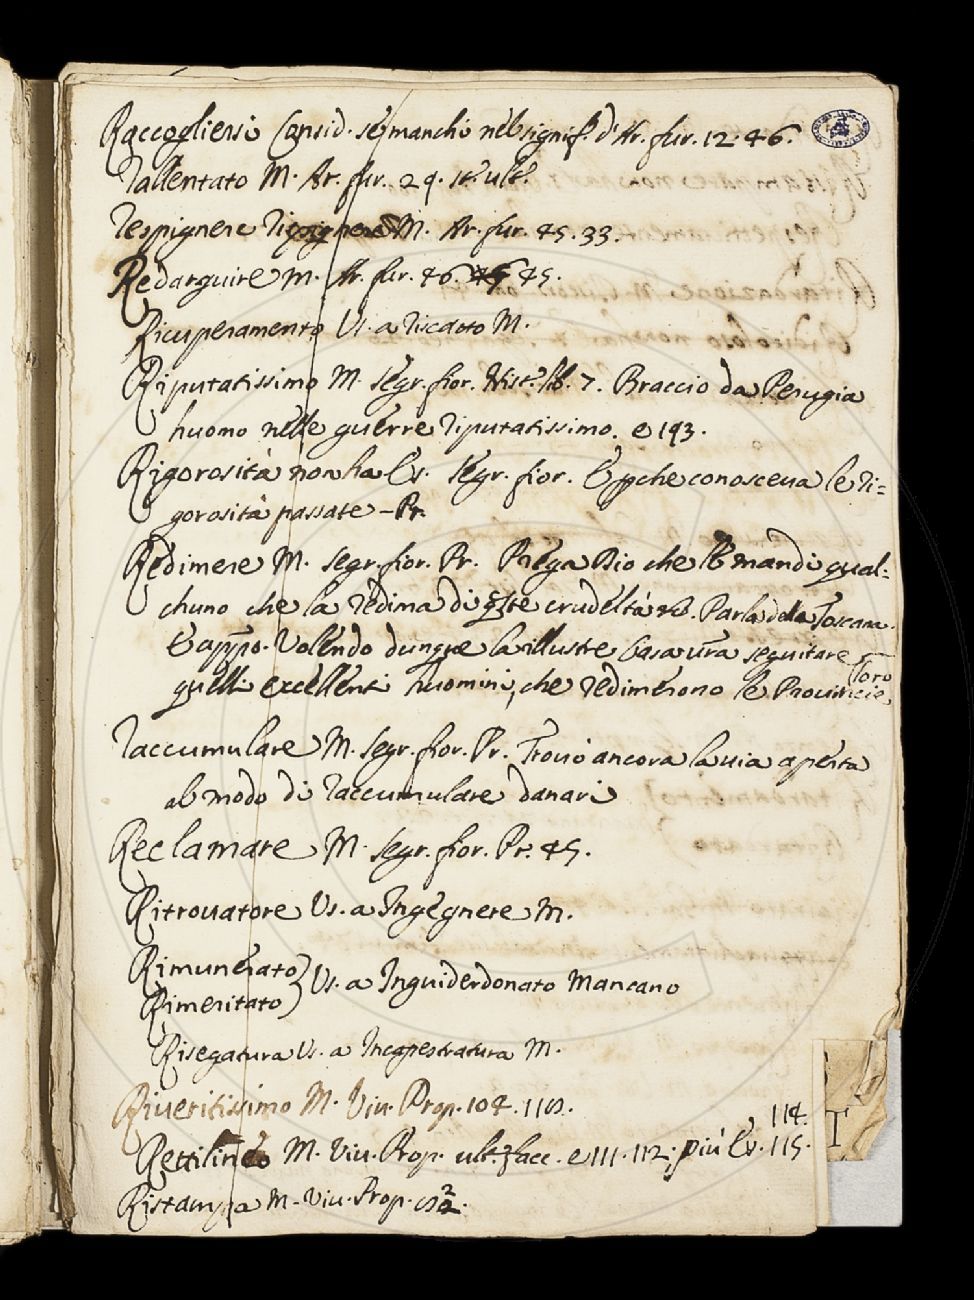 Raccogliersi Consid. se manchi nel signif. d'Ar. fur. 12. 46.
Rallentato M. Ar. fur. 29. st. ult.
Respignere M. Ar. fur. 45. 33.
Redarguire M. Ar. fur. 46. 45.
Ricuperamento Us. a riscatto M.
Riputatissimo M. Segr. fior. Hist. lib. 7. Braccio da Perugia
huomo nelle guerre riputatissimo. e 193.
Rigorosità non ha Es. Segr. fior. E pche conosceva le ri=
gorosità passate - Pr.
Redimere M. Segr. fior. Pr. Prega Dio che le mandi qual-
chuno che la redima di qste crudeltà Parla della Toscana.
E appo. Volendo dunque la illustre Casa vra seguitare
quelli excellenti huomini, che redimerono le Provincie
loro
Raccumulare M. Segr. fior. Pr. Trovò ancora la via aperta
al modo di raccumulare danari
Reclamare M. Segr. fior. Pr. 45.
Ritrovatore Us. a Ingegnere M.
Rimunerato
Rimeritato Us. a Inguiderdonato Mancano
Risegatura Us. a Incapestratura M.
Riveritissimo M. Viv. Prop. 104. 110.
114.
Rettilineo M. Viv. Prop. ult. facc. e 111. 112. più Es. 115.
Ristampa M. Viv. Prop.